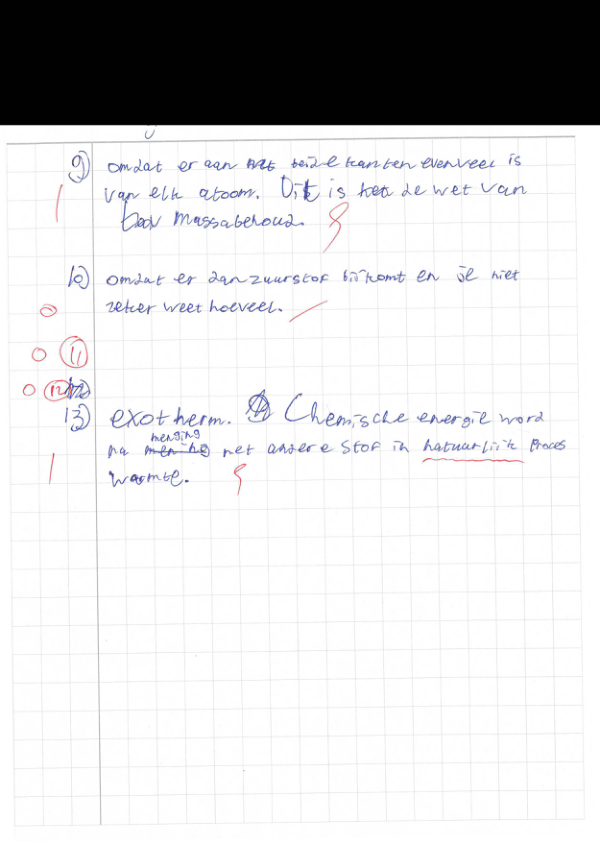 9) omdat er aan beide kanten evenveel is
1 van elk atoom. Dit is de wet van
massabehoud.
10) omdat er dan zuurstof bijkomt en je niet
0 zeker weet hoeveel.
0 11
0 12
13) exotherm. Chemische energie word
menging
na met andere stof in natuurlijk proces
1 warmte.